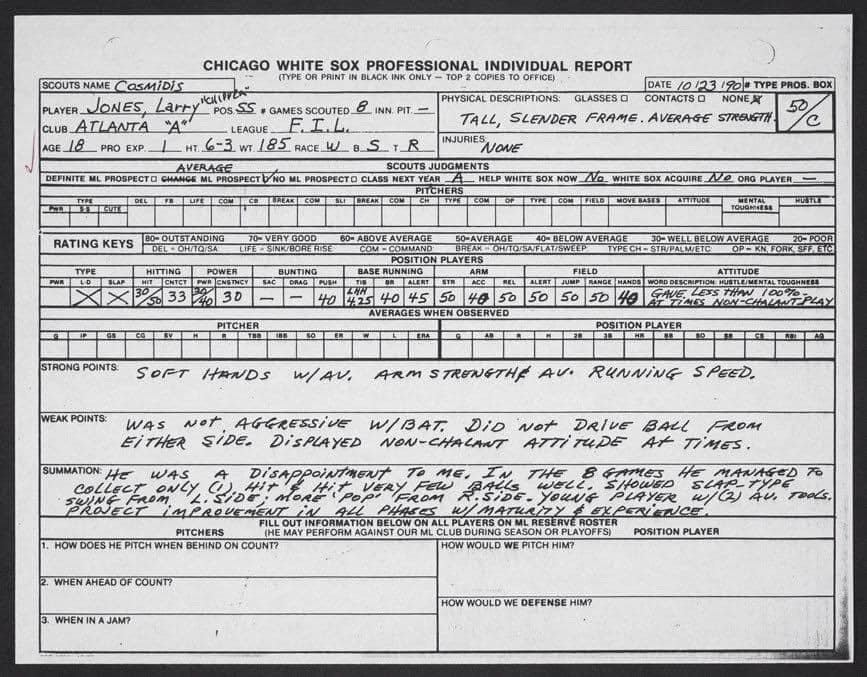 CHICAGO WHITE SOX PROFESSIONAL INDIVIDUAL REPORT
(TYPE OR PRINT IN BLACK INK ONLY — TOP 2 COPIES TO OFFICE)
SCOUTS NAME COSMIDIS DATE 10/23/90 # TYPE PROS. BOX
PLAYER JONES, Larry "CHIPPER" POS. SS # GAMES SCOUTED 8 INN. PIT. — PHYSICAL DESCRIPTIONS: GLASSES □ CONTACTS □ NONE ☒ 50/C
CLUB ATLANTA "A" LEAGUE F.I.L. TALL, SLENDER FRAME. AVERAGE STRENGTH.
AGE 18 PRO EXP. 1 HT. 6-3 WT. 185 RACE W B. S T. R INJURIES: NONE
SCOUTS JUDGMENTS
AVERAGE
DEFINITE ML PROSPECT □ CHANCE ML PROSPECT ☑ NO ML PROSPECT □ CLASS NEXT YEAR A HELP WHITE SOX NOW No WHITE SOX ACQUIRE No ORG PLAYER —
PITCHERS
TYPE DEL FB LIFE COM CB BREAK COM SLI BREAK COM CH TYPE COM OP TYPE COM FIELD MOVE BASES ATTITUDE MENTAL TOUGHNESS HUSTLE
PWR S-S CUTE
RATING KEYS 80= OUTSTANDING 70= VERY GOOD 60= ABOVE AVERAGE 50=AVERAGE 40= BELOW AVERAGE 30= WELL BELOW AVERAGE 20= POOR
DEL = OH/TQ/SA LIFE = SINK/BORE RISE COM = COMMAND BREAK = OH/TQ/SA/FLAT/SWEEP TYPE CH = STR/PALM/ETC OP = KN, FORK, SFF, ETC
POSITION PLAYERS
TYPE HITTING POWER BUNTING BASE RUNNING ARM FIELD ATTITUDE
PWR L-D SLAP HIT CNTCT PWR CNSTNCY SAC DRAG PUSH T1B BR ALERT STR ACC REL ALERT JUMP RANGE HANDS WORD DESCRIPTION: HUSTLE/MENTAL TOUGHNESS
X X 30/50 33 30/40 30 — — 40 LHH 4.25 40 45 50 40 50 50 50 50 40 GAVE LESS THAN 100%- AT TIMES NON-CHALANT PLAY
AVERAGES WHEN OBSERVED
PITCHER POSITION PLAYER
G IP GS CG SV H R TBB IBB SO ER W L ERA G AB R H 2B 3B HR BB SO SB CS RBI AG
STRONG POINTS: SOFT HANDS W/AV. ARM STRENGTH & AV. RUNNING SPEED.
WEAK POINTS: WAS NOT AGGRESSIVE W/BAT. DID NOT DRIVE BALL FROM
EITHER SIDE. DISPLAYED NON-CHALANT ATTITUDE AT TIMES.
SUMMATION: HE WAS A DISAPPOINTMENT TO ME. IN THE 8 GAMES HE MANAGED TO
COLLECT ONLY (1) HIT & HIT VERY FEW BALLS WELL. SHOWED SLAP-TYPE
SWING FROM L. SIDE; MORE 'POP' FROM R. SIDE. YOUNG PLAYER W/(2) AV. TOOLS.
PROJECT IMPROVEMENT IN ALL PHASES W/ MATURITY & EXPERIENCE.
FILL OUT INFORMATION BELOW ON ALL PLAYERS ON ML RESERVE ROSTER
PITCHERS (HE MAY PERFORM AGAINST OUR ML CLUB DURING SEASON OR PLAYOFFS) POSITION PLAYER
1. HOW DOES HE PITCH WHEN BEHIND ON COUNT? HOW WOULD WE PITCH HIM?
2. WHEN AHEAD OF COUNT?
HOW WOULD WE DEFENSE HIM?
3. WHEN IN A JAM?